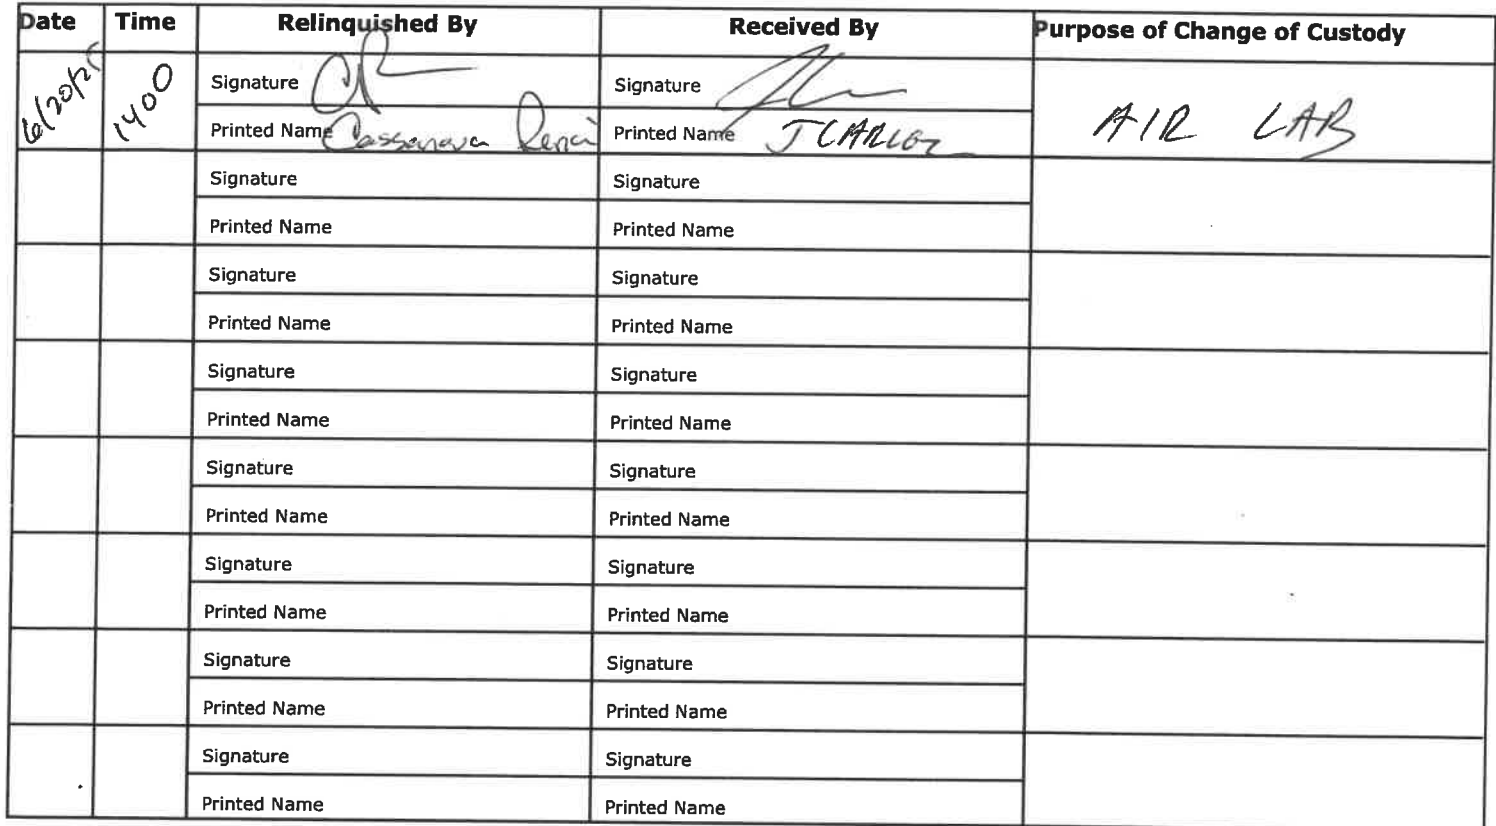 Date Time Relinquished By Received By Purpose of Change of Custody
1400
Signature Signature
AIR LAB
Printed Name Cassanova Printed Name
Signature Signature
Printed Name Printed Name
Signature Signature
Printed Name Printed Name
Signature Signature
Printed Name Printed Name
Signature Signature
Printed Name Printed Name
Signature Signature
Printed Name Printed Name
Signature Signature
Printed Name Printed Name
Signature Signature
Printed Name Printed Name